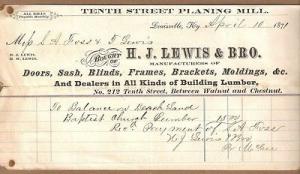 TENTH STREET PLANING MILL.
ALL BILLS
Payable Monthly
Louisville, Ky. April 10 1871
Miss L A Foss & F Lewis
H. J. LEWIS.
H. W. LEWIS.
BOUGHT OF H. J. LEWIS & BRO.
MANUFACTURERS OF
Doors, Sash, Blinds, Frames, Brackets, Moldings, &c.
And Dealers in All Kinds of Building Lumber,
No. 212 Tenth Street, Between Walnut and Chestnut.
To Balance
Baptist Church Lumber
Rec. Payment of L A Foss
H J Lewis & Bro